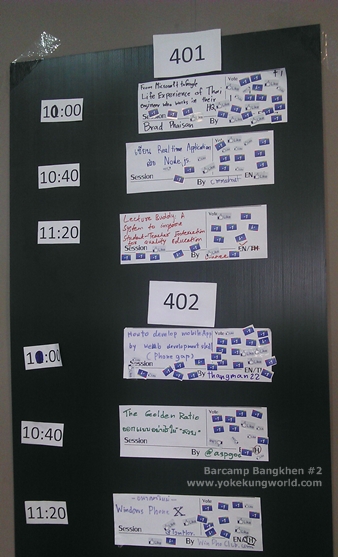 401
10:00
From Microsoft to Google
Life Experience of Thai
Engineer who works in their
HQ
+1
Vote
Session
By
Brad Phaisan
10:40
เขียน Realtime Application
ด้วย Node.js
Vote
Session
By
EN/
11:20
Lecture Buddy: A
System to improve
Student-Teacher Interaction
for Quality Education
Vote
Session
By
EN/TH
402
10:00
How to develop mobile App
by web development skill
(Phonegap)
Vote
By thangman22
EN/
10:40
The Golden Ratio
ออกแบบอย่างไรให้ "สวย"
Vote
Session
By @aspgos
11:20
Windows Phone X
Vote
Session
By
EN/TH
Barcamp Bangkhen #2
www.yokekungworld.com